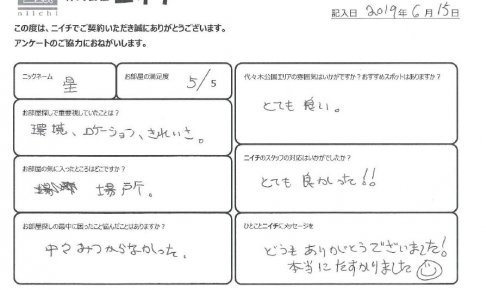 niichi
記入日 2019年6月15日
この度は、ニイチでご契約いただき誠にありがとうございます。
アンケートのご協力におねがいします。
ニックネーム
星
お部屋の満足度
5/5
お部屋探しで重要視していたことは?
環境、ロケーション、きれいさ。
お部屋の気に入ったところはどこですか?
場所。
お部屋探しの最中に困ったこと悩んだことはありますか?
中々みつからなかった。
代々木公園エリアの雰囲気はいかがですか?おすすめスポットはありますか?
とても良い。
ニイチのスタッフの対応はいかがでしたか?
とても良かった!!
ひとことニイチにメッセージを
どうもありがとうございました!
本当にたすかりました